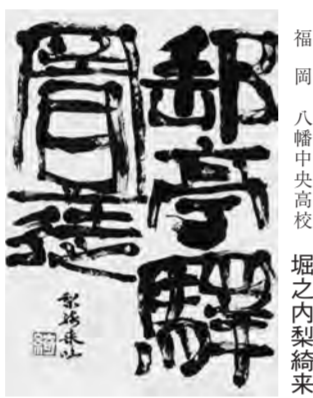 福岡 八幡中央高校 堀之内梨綺来
郵亭驛
置徒
梨綺来臨